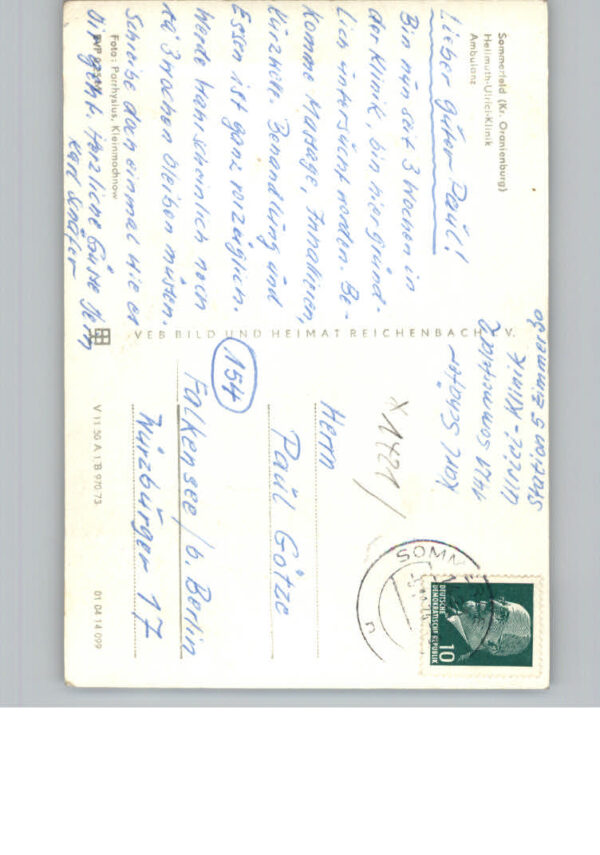 Sommerfeld (Kr. Oranienburg)
Hellmuth-Ulrici-Klinik
Ambulanz
Lieber guter Paul!
Bin nun seit 3 Wochen in
der Klinik, bin hier gründ-
lich untersucht worden. Be-
komme Massage, Innalieren,
Kürzwelle. Behandlung und
Essen ist ganz vorzüglich.
Werde wahrscheinlich noch
3 Wochen bleiben müssen.
Schreibe doch einmal wie es
Dir geht. Herzliche Grüße
Karl Schäfer
Foto: Parrhysius, Kleinmachnow
VEB BILD UND HEIMAT REICHENBACH V.
V 11 50 A 1/B 970/73
01 04 14 099
Karl Schäfer
1421 Sommerfeld
Ulrici-Klinik
Station 5 Zimmer 30
X 1421/
Herrn
Paul Götze
154
Falkensee / b. Berlin
Würzburger 17
SOMM
DEUTSCHE
DEMOKRATISCHE REPUBLIK
10